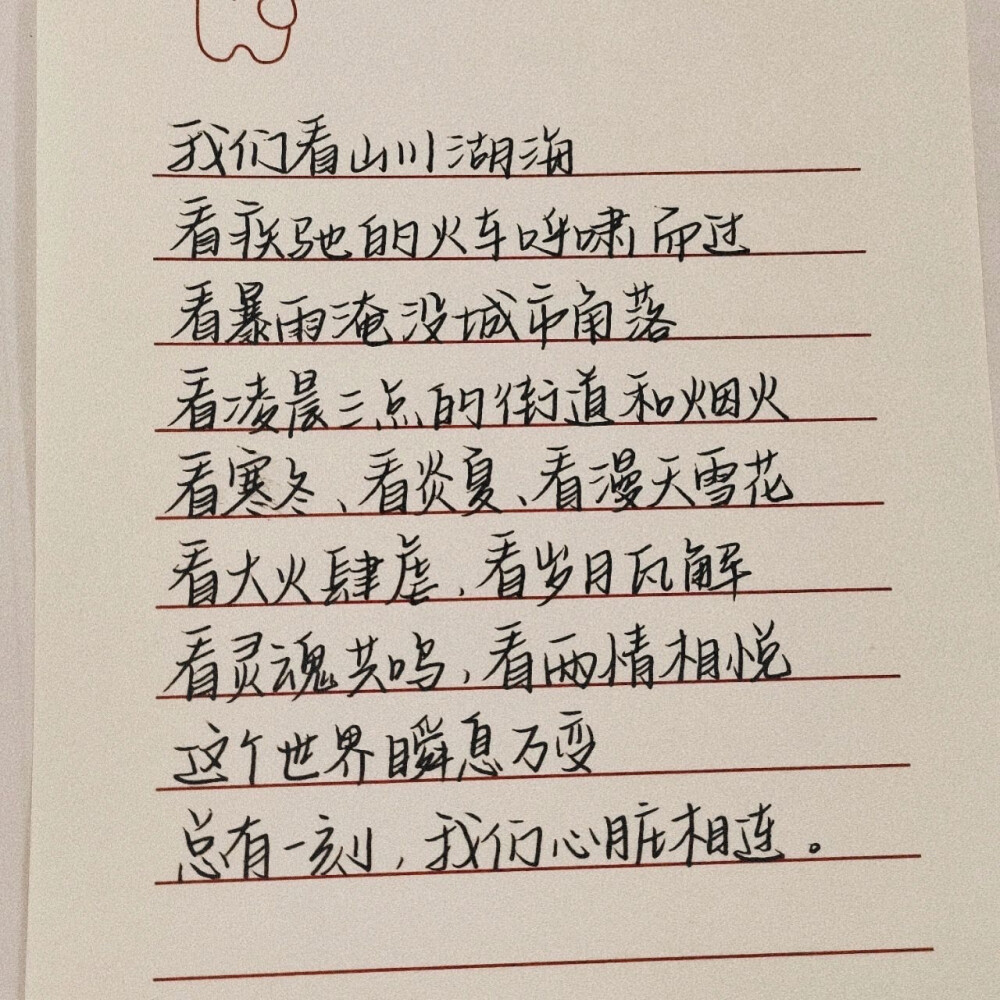 我们看山川湖海
看疾驰的火车呼啸而过
看暴雨淹没城市角落
看凌晨三点的街道和烟火
看寒冬、看炎夏、看漫天雪花
看大火肆虐,看岁月瓦解
看灵魂共鸣,看两情相悦
这个世界瞬息万变
总有一刻,我们心脏相连。